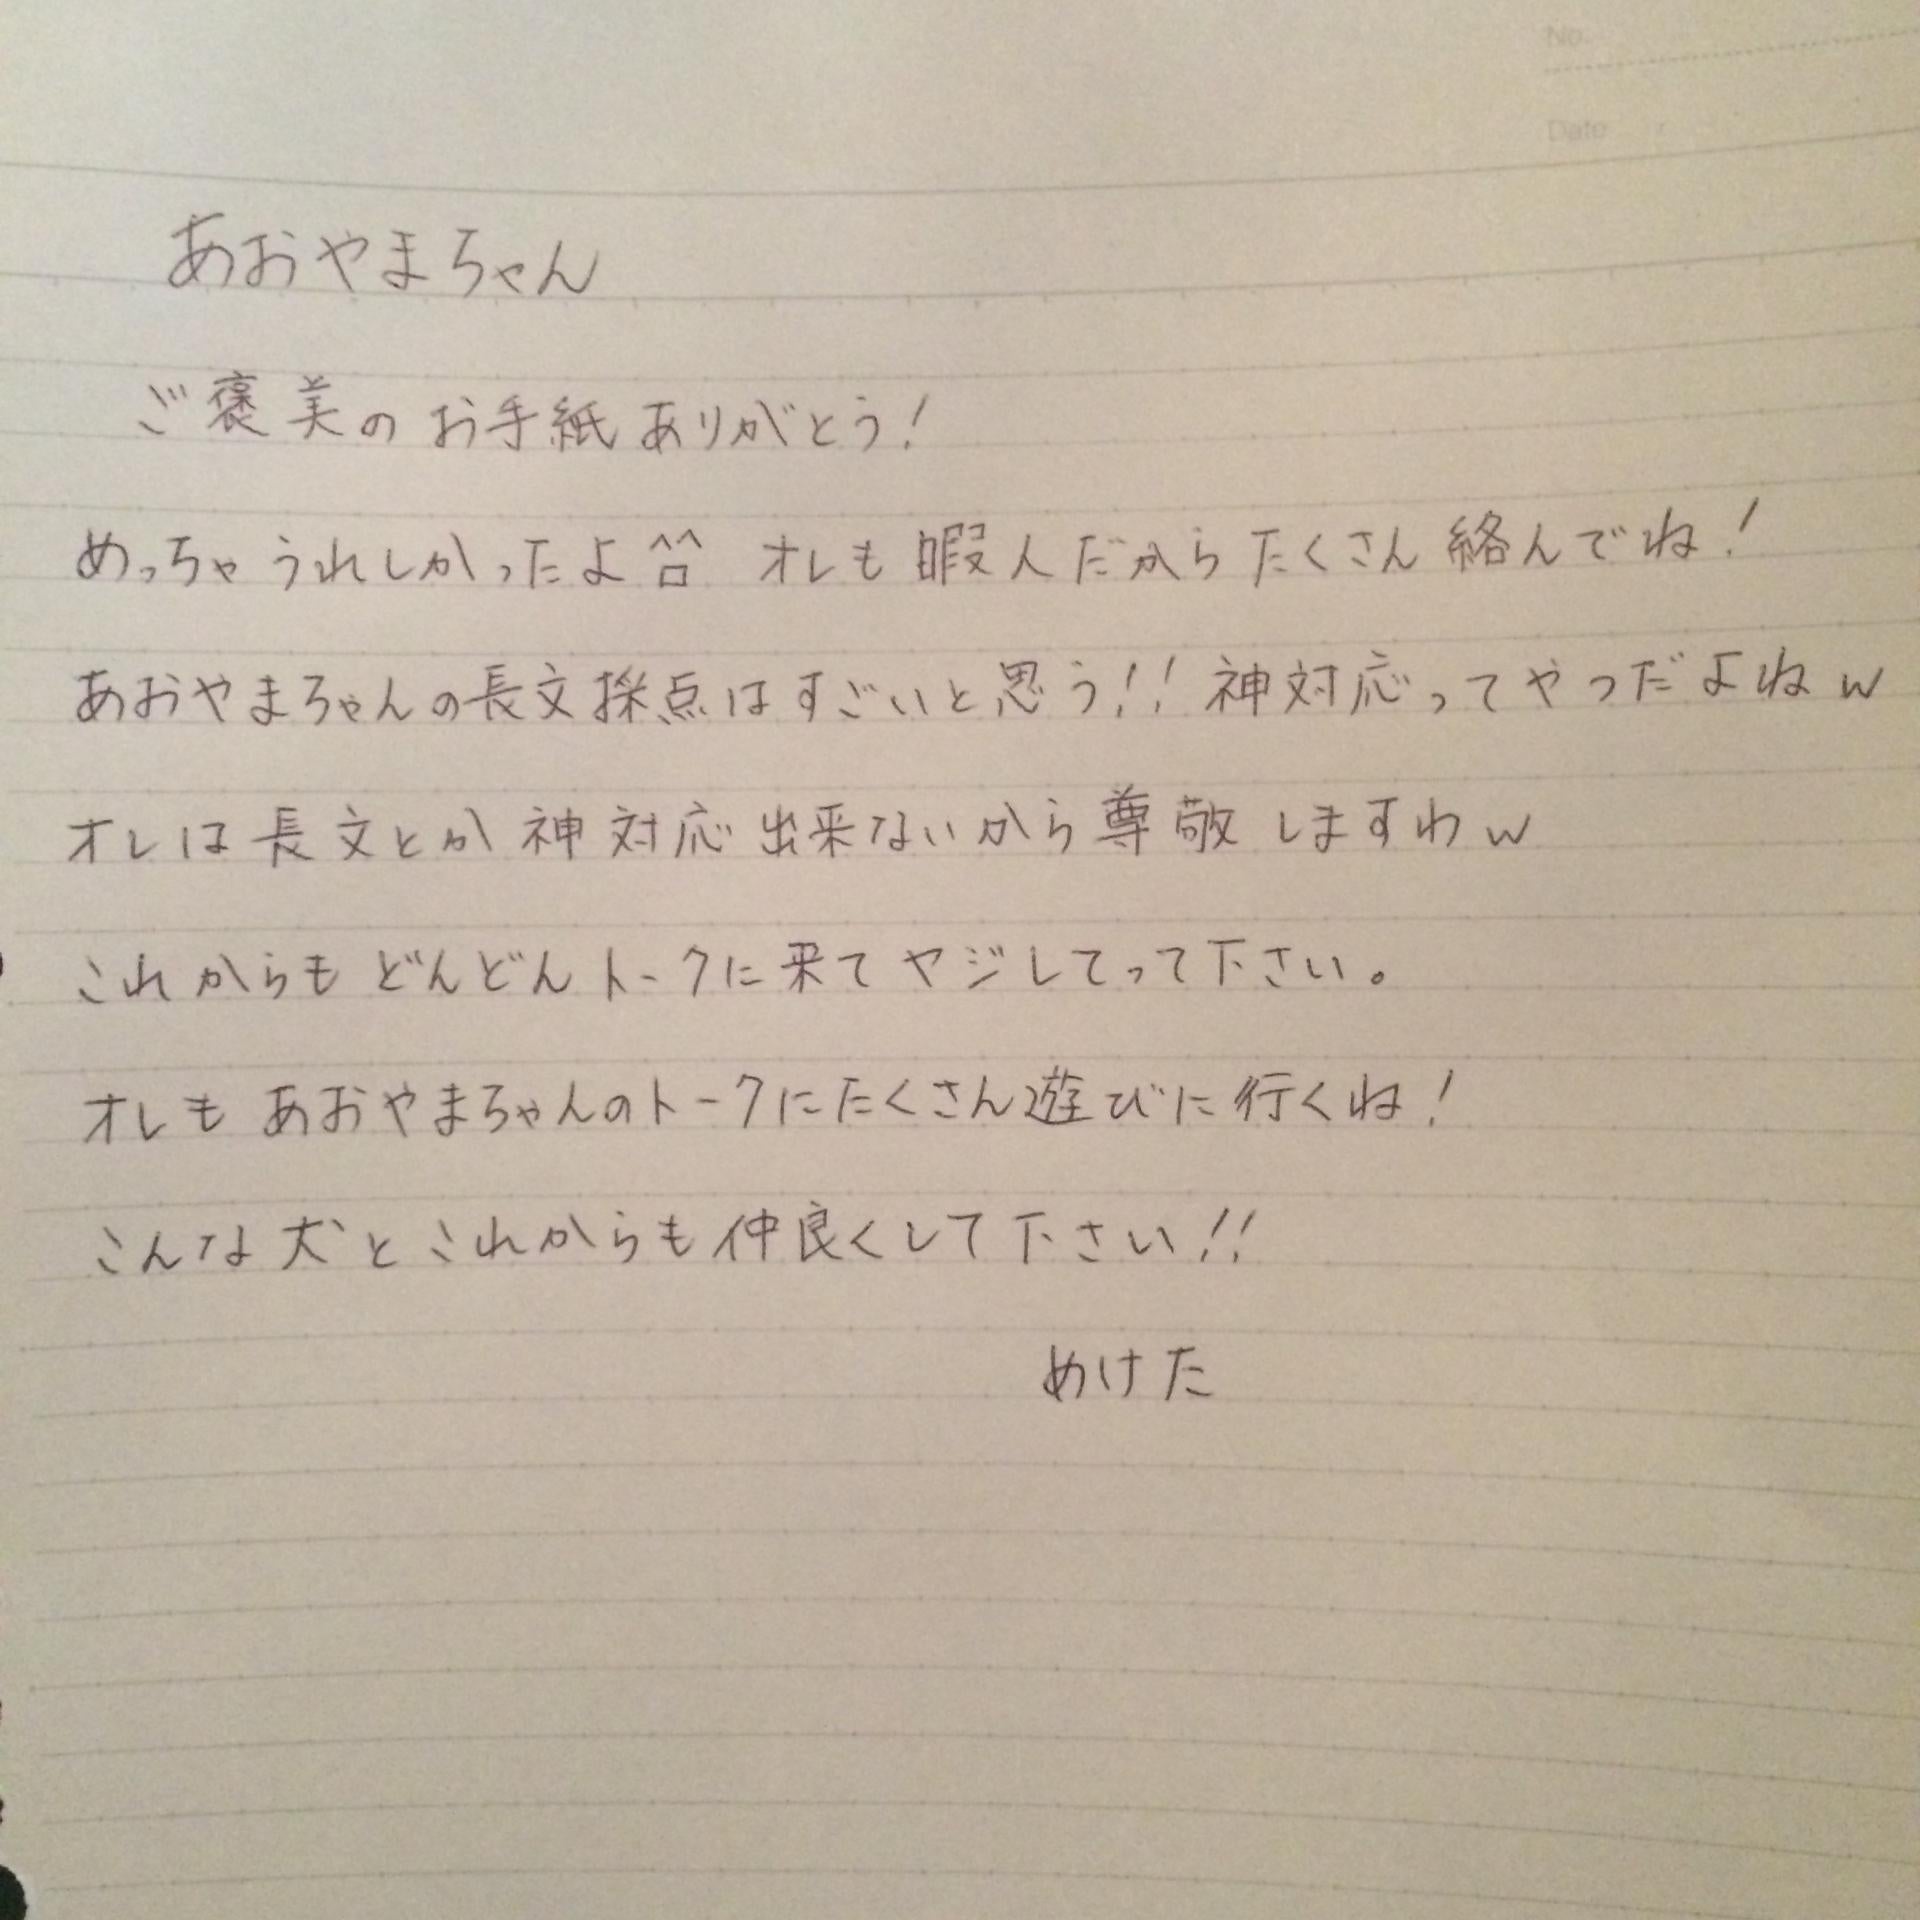 No.
Date
あおやまちゃん
ご褒美のお手紙ありがとう!
めっちゃうれしかったよ^ロ^ オレも暇人だからたくさん絡んでね!
あおやまちゃんの長文採点はすごいと思う!!神対応ってやつだよねw
オレは長文とか神対応出来ないから尊敬しますわw
これからもどんどんトークに来てヤジしてって下さい。
オレもあおやまちゃんのトークにたくさん遊びに行くね!
こんな犬とこれからも仲良くして下さい!!
めけた